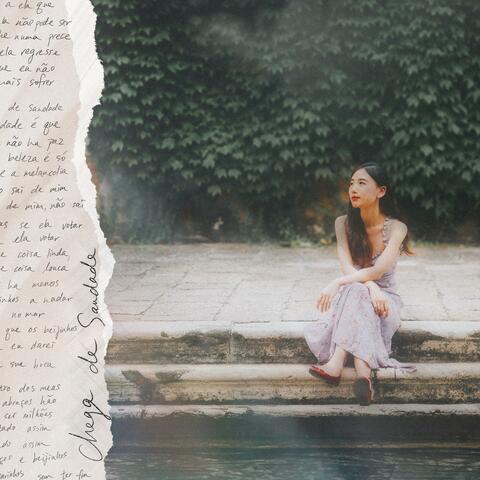 a ela que
la não pode ser
he numa prece
ela regresse
ue eu não
mais sofrer
de saudade
dade é que
não ha paz
beleza é só
e a melancolia
o sai de mim
de mim, não sai
as se ela votar
ela votar
e coisa linda
e coisa louca
ha menos
inhos a nadar
no mar
que os beijinhos
eu darei
a sua boca
tro dos meus
abraços hão
ser milhões
tado assim
ado assim
ços e beijinhos
carinhos sem ter fim
Chega de Saudade